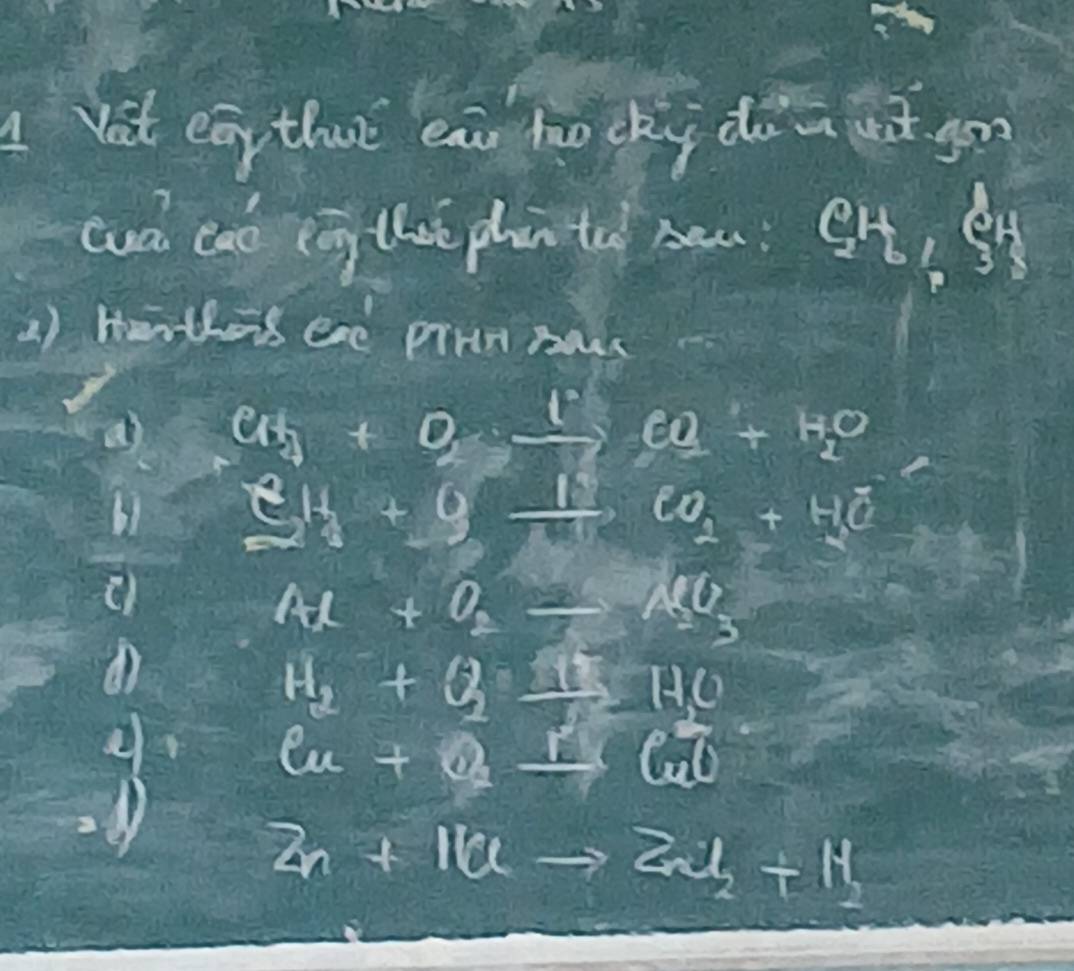 1 Viết công thức cấu tạo dạng đầy đủ và viết gọn
của các công thức phân tử sau: C₂H₆, C₃H₈
2) Hoàn thành các PTHH sau
a) CH₄ + O₂ —t°→ CO₂ + H₂O
b) + O₂ —t°→ CO₂ + H₂O
c) Al + O₂ → Al₂O₃
d) H₂ + O₂ —t°→ H₂O
e) Cu + O₂ —t°→ CuO
f)
Zn + HCl → ZnCl₂ + H₂